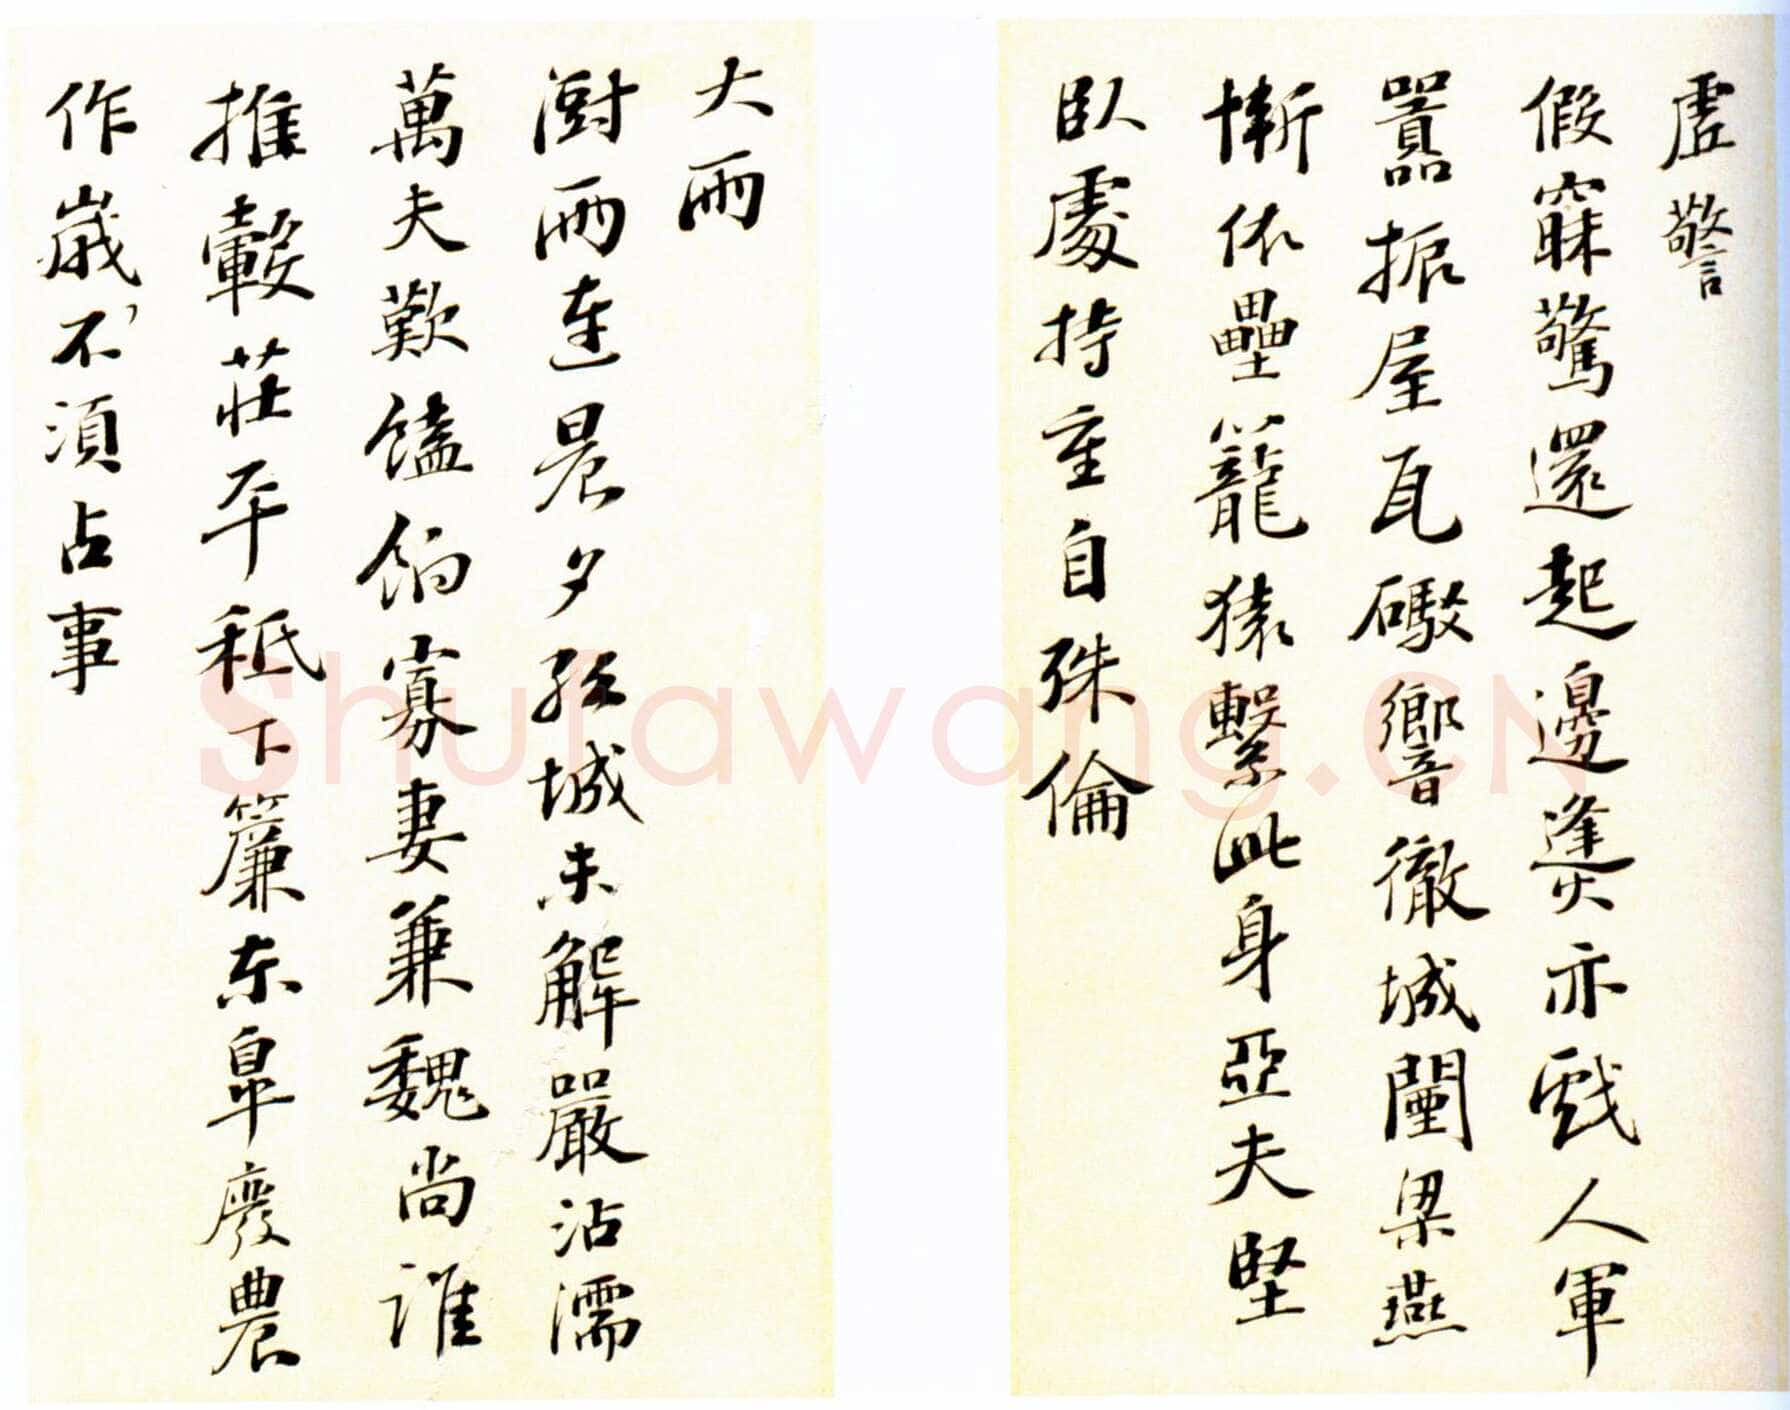 虛警
假寐驚還起邊燧亦戲人軍
囂振屋瓦礮響徹城闉梁燕
慚依壘籠猿繫此身亞夫堅
臥處持重自殊倫
大雨
澍雨連晨夕孤城未解嚴沾濡
萬夫歎饁餉寡妻兼魏尚誰
推轂莊平秪下簾東皐廢農
作歲不須占事
Shufawang.CN